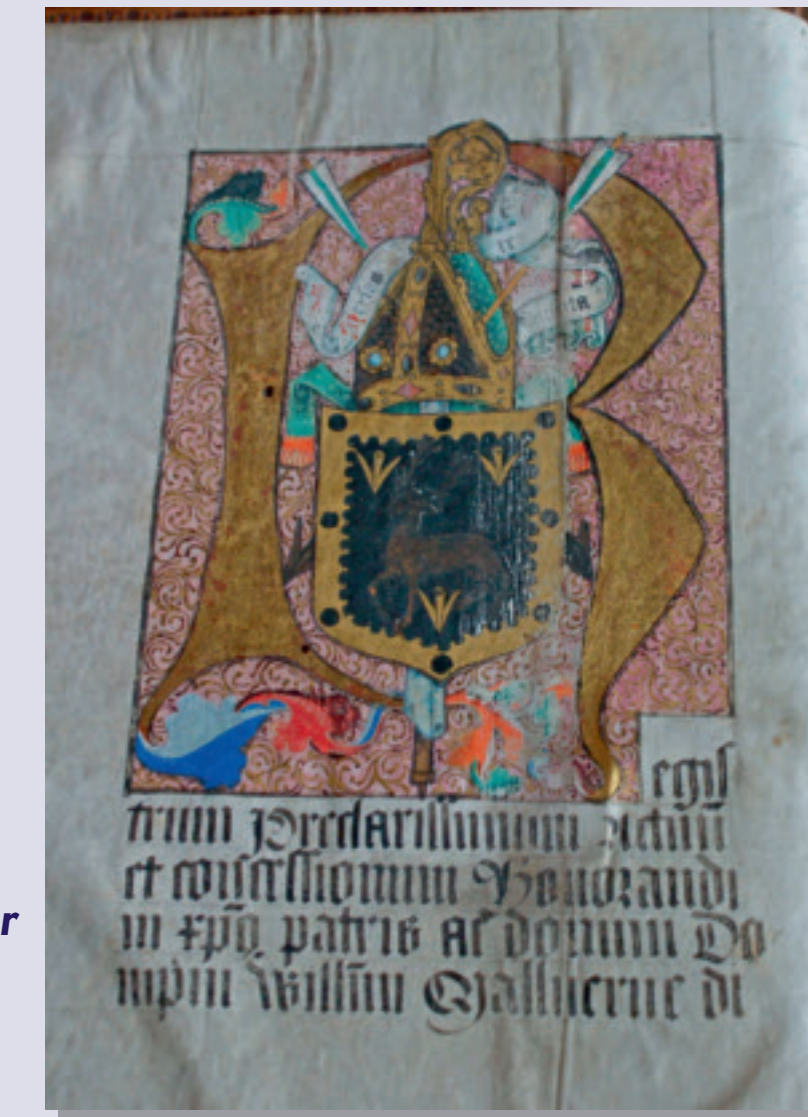 egis
trum Preclarissimum Actuũ
et concessionum Honorandi
in xp̃o patris ac domini Do
mpni Willm̃i Malluerne di
r